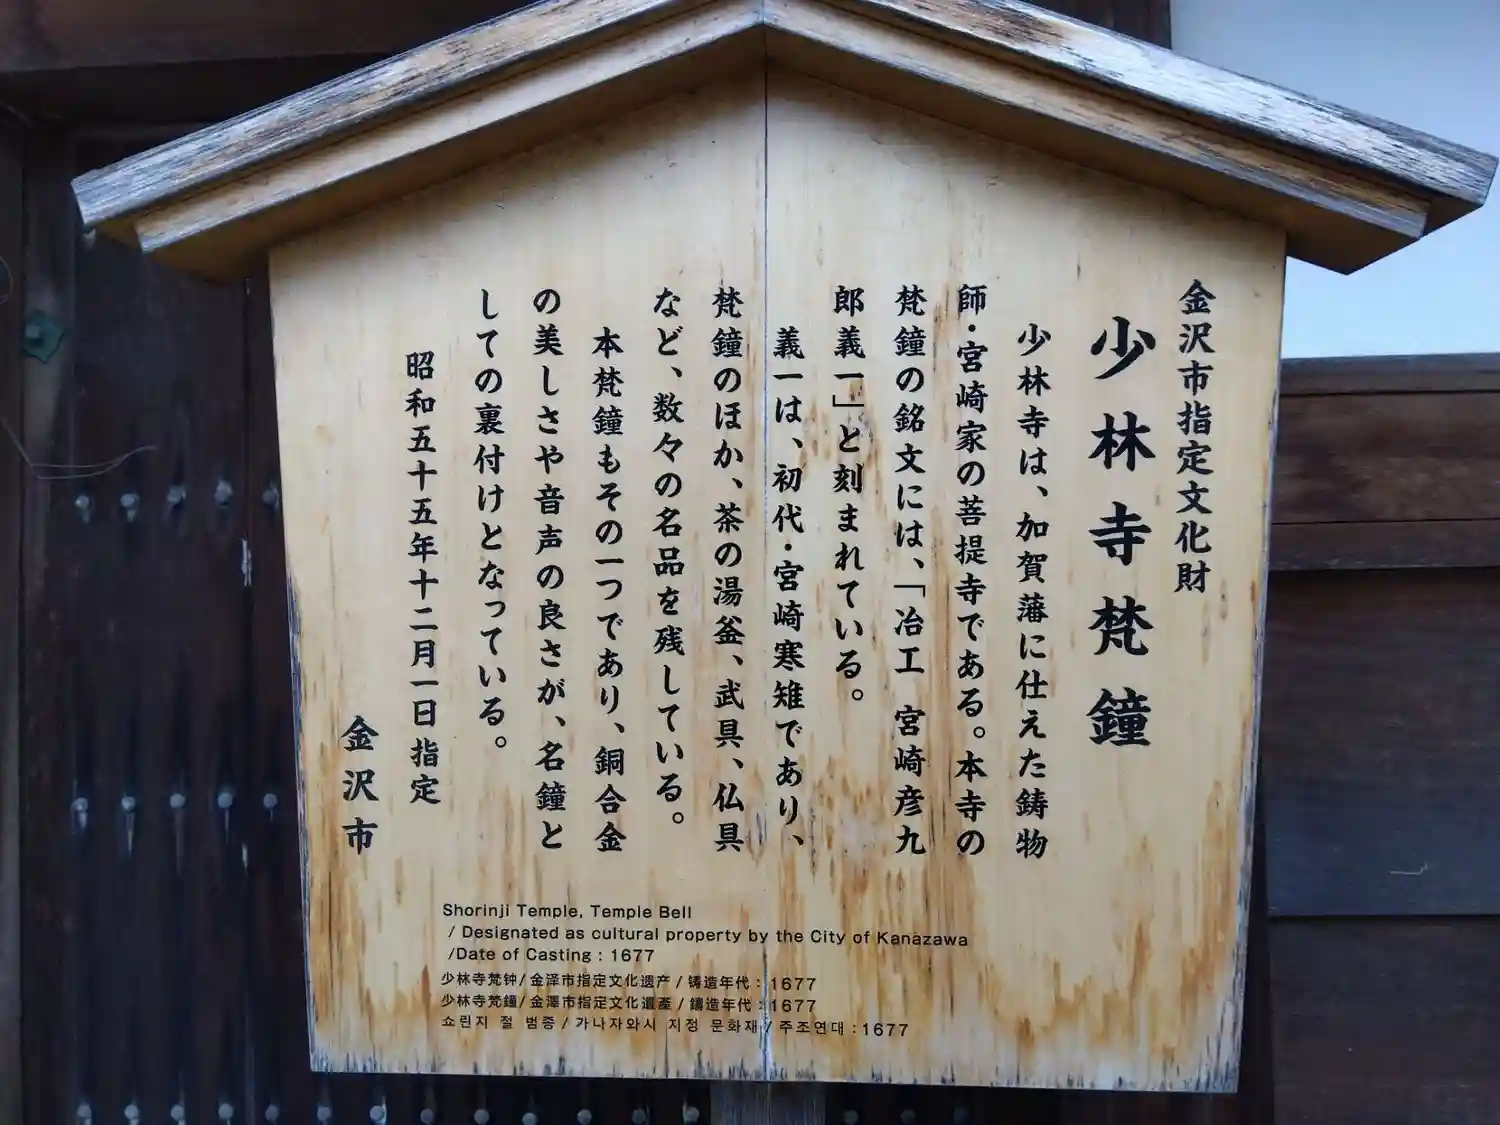 金沢市指定文化財
少林寺梵鐘
少林寺は、加賀藩に仕えた鋳物
師・宮崎家の菩提寺である。本寺の
梵鐘の銘文には、「冶工 宮崎彦九
郎義一」と刻まれている。
義一は、初代・宮崎寒雉であり、
梵鐘のほか、茶の湯釜、武具、仏具
など、数々の名品を残している。
本梵鐘もその一つであり、銅合金
の美しさや音声の良さが、名鐘と
しての裏付けとなっている。
昭和五十五年十二月一日指定
金沢市
Shorinji Temple, Temple Bell
/ Designated as cultural property by the City of Kanazawa
/Date of Casting : 1677
少林寺梵钟/金泽市指定文化遗产/铸造年代：1677
少林寺梵鐘/金澤市指定文化遺產/鑄造年代：1677
쇼린지 절 범종/가나자와시 지정 문화재/주조연대:1677